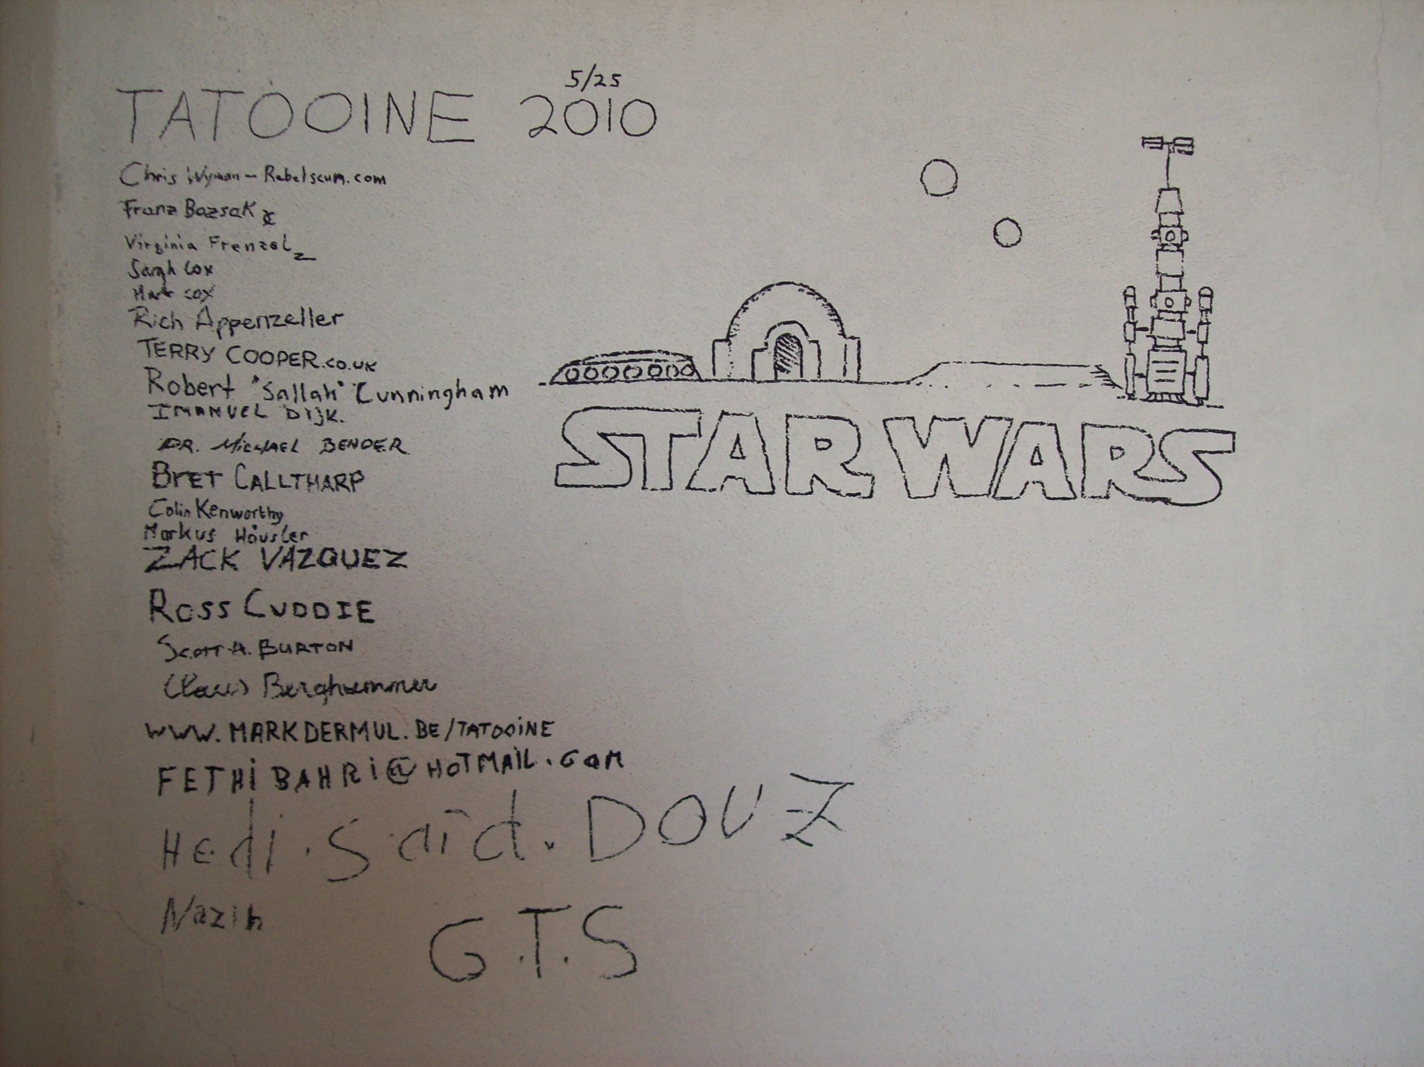 TATOOINE 5/25 2010
Chris Wyman - Rebelscum.com
Franz Bazsak
Virginia Frenzel
Sarah Cox
Mark Cox
Rich Appenzeller
TERRY COOPER.CO.UK
Robert "Sallah" Cunningham
IMANUEL DIJK.
DR. MICHAEL BENDER
BRET CALLTHARP
Colin Kenworthy
Markus Häusler
ZACK VAZQUEZ
ROSS CUDDIE
SCOTT A. BURTON
Claus Berghammer
WWW.MARKDERMUL.BE/TATOOINE
FETHIBAHRI@HOTMAIL.COM
Hedi.Said.DOUZ
Nazih
G.T.S
STAR WARS